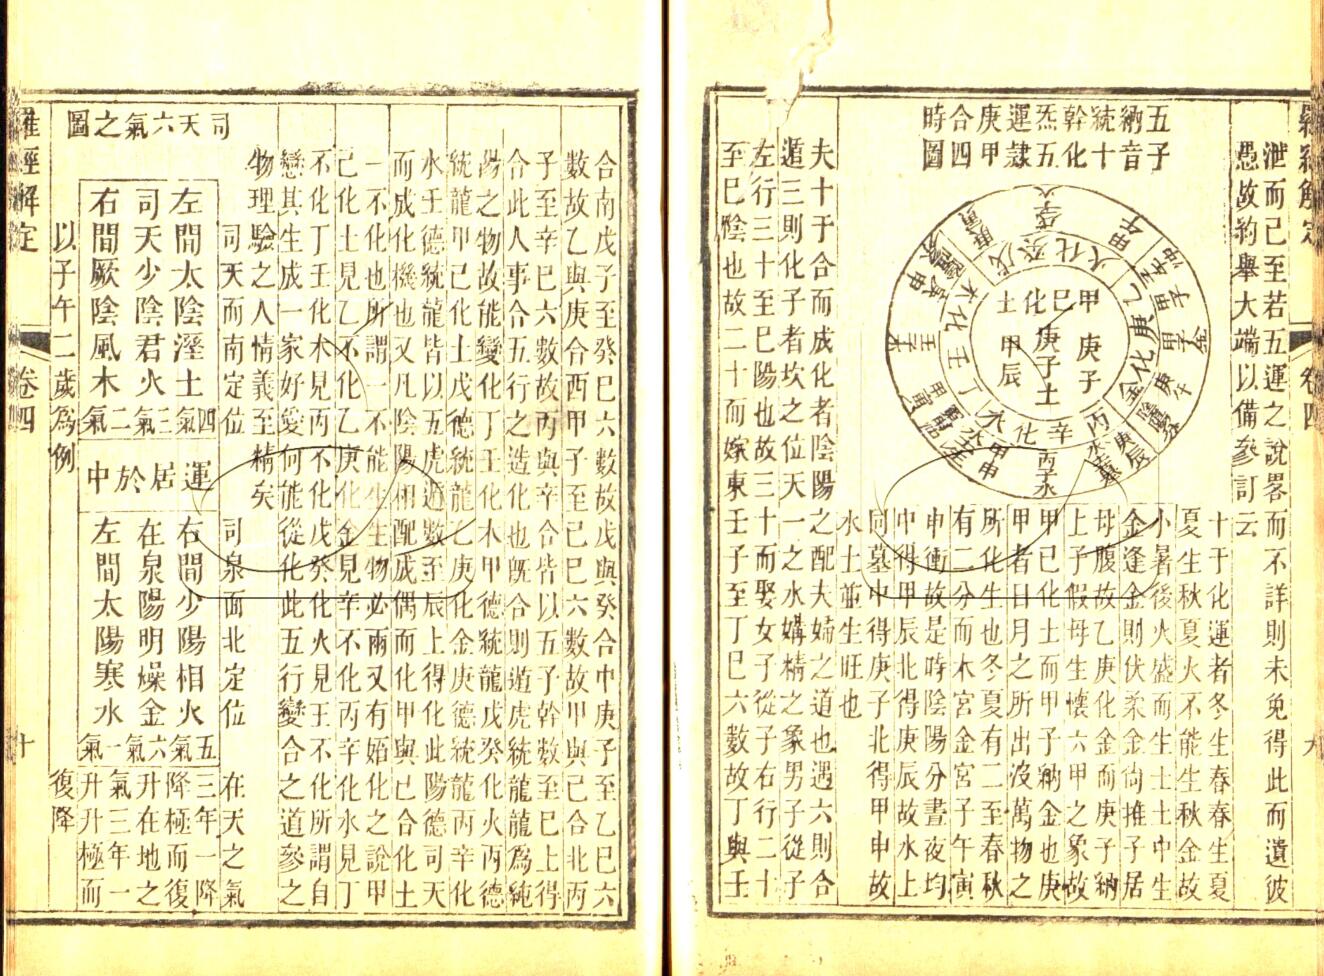 泄而已至若五運之說畧而不詳則未免得此而遺彼
愚故約舉大端以備參訂云
五子
納音
統十
幹化
炁五
運隸
庚甲
合四
時圖
甲巳化土
庚子
庚子土
甲辰
乙庚化金
丙辛化水
丁壬化木
戊癸化火
十于化運者冬生春春生夏
夏生秋夏火不能生秋金故
小暑後火盛而生土土中生
金逢金則伏柔金尙推子居
母腹故乙庚化金而庚子納
上子假母生懷六甲之象故
甲巳化土而甲子納金也庚
甲者日月之所出沒萬物之
所化生也冬夏有二至春秋
有二分而木宮金宮子午寅
申衝故是時陰陽分晝夜均
中得甲辰北得庚辰故水上
同墓中得庚子北得甲申故
水土並生旺也
夫十于合而成化者陰陽之配夫婦之道也遇六則合
遁三則化子者坎之位天一之水媾精之象男子從子
左行三十至巳陽也故三十而娶女子從子右行二十
至巳陰也故二十而嫁東壬子至丁巳六數故丁與壬
羅經解定
卷四
九
合南戊子至癸巳六數故戊與癸合中庚子至乙巳六
數故乙與庚合西甲子至己巳六數故甲與己合北丙
子至辛巳六數故丙與辛合皆以五子幹數至巳上得
合此人事合五行之造化也旣合則遁虎統龍龍爲純
陽之物故能變化丁壬化木甲德統龍戊癸化火丙德
統龍甲己化土戊德統龍乙庚化金庚德統龍丙辛化
水壬德統龍皆以五虎遁數至辰上得化此陽德司天
而成化機也又凡陰陽相配成偶而化甲與己合化土
一不化也所謂一不能生生物必兩又有婚化之說甲
己化土見乙不化乙庚化金見辛不化丙辛化水見丁
不化丁壬化木見丙不化戊癸化火見壬不化所謂自
戀其生成一家好愛何能從化此五行變合之道參之
物理驗之人情義至精矣
司天六氣之圖
司天而南定位
司泉面北定位
左間太陰溼土四氣
司天少陰君火三氣
右間厥陰風木二氣
運居於中
右間少陽相火五氣
在泉陽明燥金六氣
左間太陽寒水一氣
以子午二歲爲例
在天之氣
三年一降
降極而復
升在地之
氣三年一
升升極而
復降
羅經解定
卷四
十